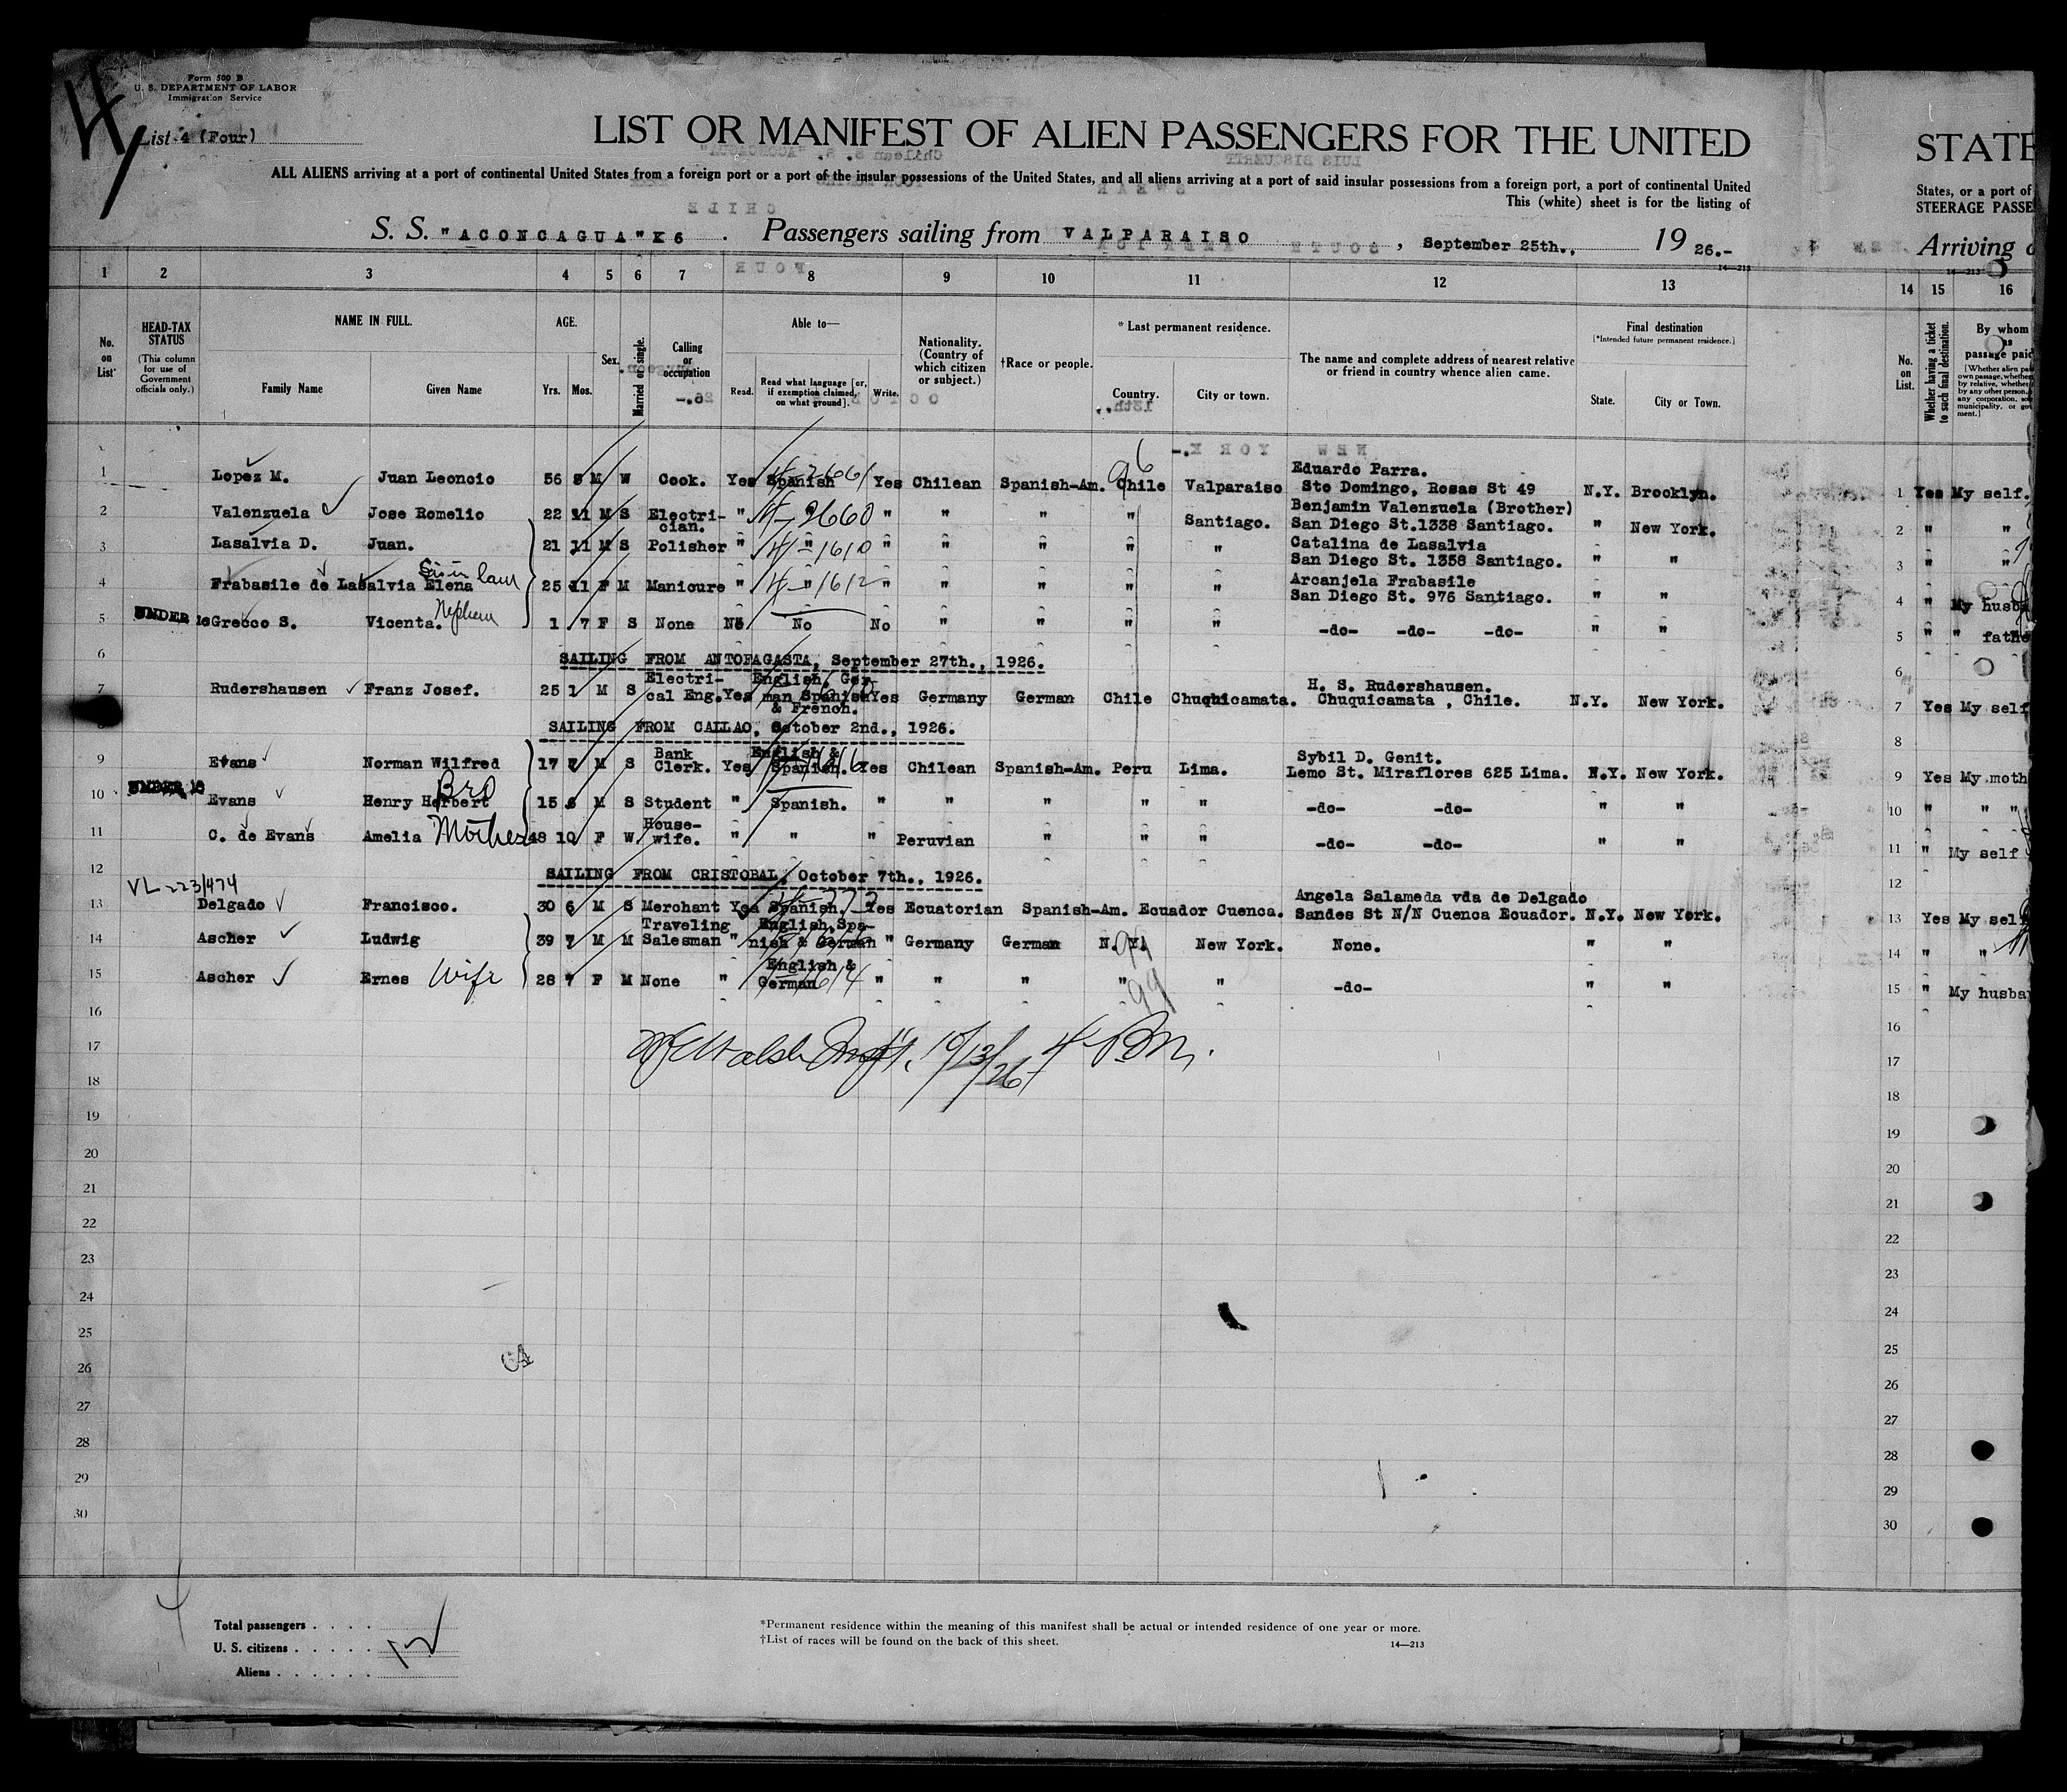 Form 500 B
U. S. DEPARTMENT OF LABOR
Immigration Service
List 4 (Four)
LIST OR MANIFEST OF ALIEN PASSENGERS FOR THE UNITED STATE
ALL ALIENS arriving at a port of continental United States from a foreign port or a port of the insular possessions of the United States, and all aliens arriving at a port of said insular possessions from a foreign port, a port of continental United States, or a port of
This (white) sheet is for the listing of STEERAGE PASSE
S. S. "ACONCAGUA" K6 . Passengers sailing from VALPARAISO , September 25th., 19 26.- Arriving
1 2 3 4 5 6 7 8 9 10 11 12 13 14 15 16
No. on List
HEAD-TAX STATUS
(This column for use of Government officials only.)
NAME IN FULL.
Family Name Given Name
AGE.
Yrs. Mos.
Sex.
Married or single.
Calling or occupation
Able to—
Read. Read what language [or, if exemption claimed, on what ground]. Write.
Nationality. (Country of which citizen or subject.)
†Race or people.
* Last permanent residence.
Country. City or town.
The name and complete address of nearest relative or friend in country whence alien came.
Final destination
[*Intended future permanent residence.]
State. City or Town.
No. on List.
Whether having a ticket to such final destination.
By whom was passage paid
14—213
1 Lopez M. Juan Leoncio 56 8 M W Cook. Yes Spanish Yes Chilean Spanish-Am. Chile Valparaiso Eduardo Parra. Sto Domingo, Rosas St 49 N.Y. Brooklyn. 1 Yes My self.
2 Valenzuela Jose Romelio 22 11 M S Electrician. " " " " " " Santiago. Benjamin Valenzuela (Brother) San Diego St.1338 Santiago. " New York. 2 " "
3 Lasalvia D. Juan. 21 11 M S Polisher " " " " " " " Catalina de Lasalvia San Diego St. 1358 Santiago. " " 3 " "
4 Frabasile de Lasalvia Elena 25 11 F M Manicure " " " " " " " Arcanjela Frabasile San Diego St. 976 Santiago. " " 4 " My husba
5 UNDER 16 Grecco S. Vicenta. Nephew 1 7 F S None No No No " " " " -do- -do- -do- " " 5 " " fathe
6 SAILING FROM ANTOFAGASTA, September 27th., 1926. 6
7 Rudershausen Franz Josef. 25 1 M S Electrical Eng. Yes English, German Spanish & French. Yes Germany German Chile Chuquicamata. H. S. Rudershausen. Chuquicamata , Chile. N.Y. New York. 7 Yes My self
8 SAILING FROM CALLAO, October 2nd., 1926. 8
9 Evans Norman Wilfred 17 7 M S Bank Clerk. Yes English & Spanish. Yes Chilean Spanish-Am. Peru Lima. Sybil D. Genit. Lemo St. Miraflores 625 Lima. N.Y. New York. 9 Yes My moth
10 UNDER 16 Evans Henry Herbert Bro 15 6 M S Student " Spanish. " " " " " -do- -do- " " 10 " " "
11 C. de Evans Amelia Mother 48 10 F W Housewife. " " " Peruvian " " " -do- -do- " " 11 " My self
12 SAILING FROM CRISTOBAL, October 7th., 1926. 12
VL 223/474
13 Delgado Francisco. 30 6 M S Merchant Yes Spanish. Yes Ecuatorian Spanish-Am. Ecuador Cuenca. Angela Salameda vda de Delgado Sandes St N/N Cuenca Ecuador. N.Y. New York. 13 Yes My self
14 Ascher Ludwig 39 7 M M Traveling Salesman " English,Spanish & German " Germany German N.Y. New York. None. " " 14 " "
15 Ascher Ernes Wife 28 7 F M None " English & German " " " " " -do- " " 15 " My husba
16 16
17 17
18 18
19 19
20 20
21 21
22 22
23 23
24 24
25 25
26 26
27 27
28 28
29 29
30 30
10/13/26
Total passengers . . . .
U. S. citizens . . . . . 12
Aliens . . . . . .
*Permanent residence within the meaning of this manifest shall be actual or intended residence of one year or more.
†List of races will be found on the back of this sheet.
14—213